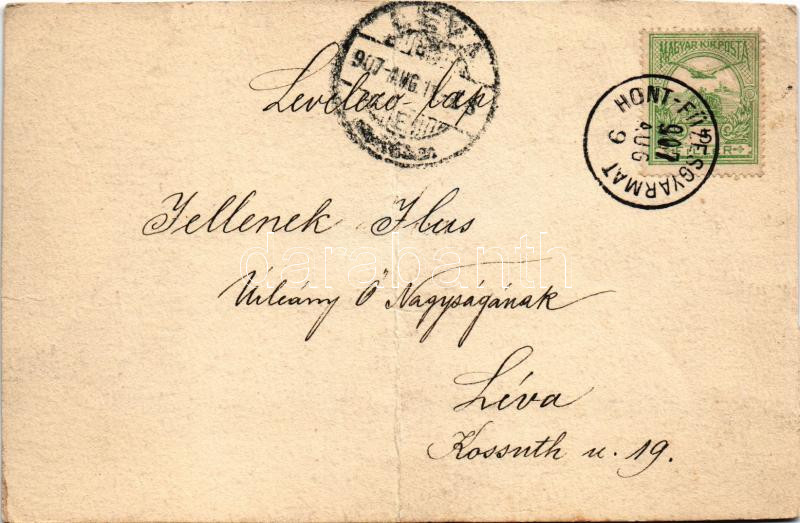 LÉVA
907 AUG. 1
MAGYAR KIR. POSTA
HONT-FÜZESGYARMAT
907
AUG
9
Levelező-lap
Jellenek Ilus
Úrleány Ő Nagyságának
Léva
Kossuth u. 19.
darabanth